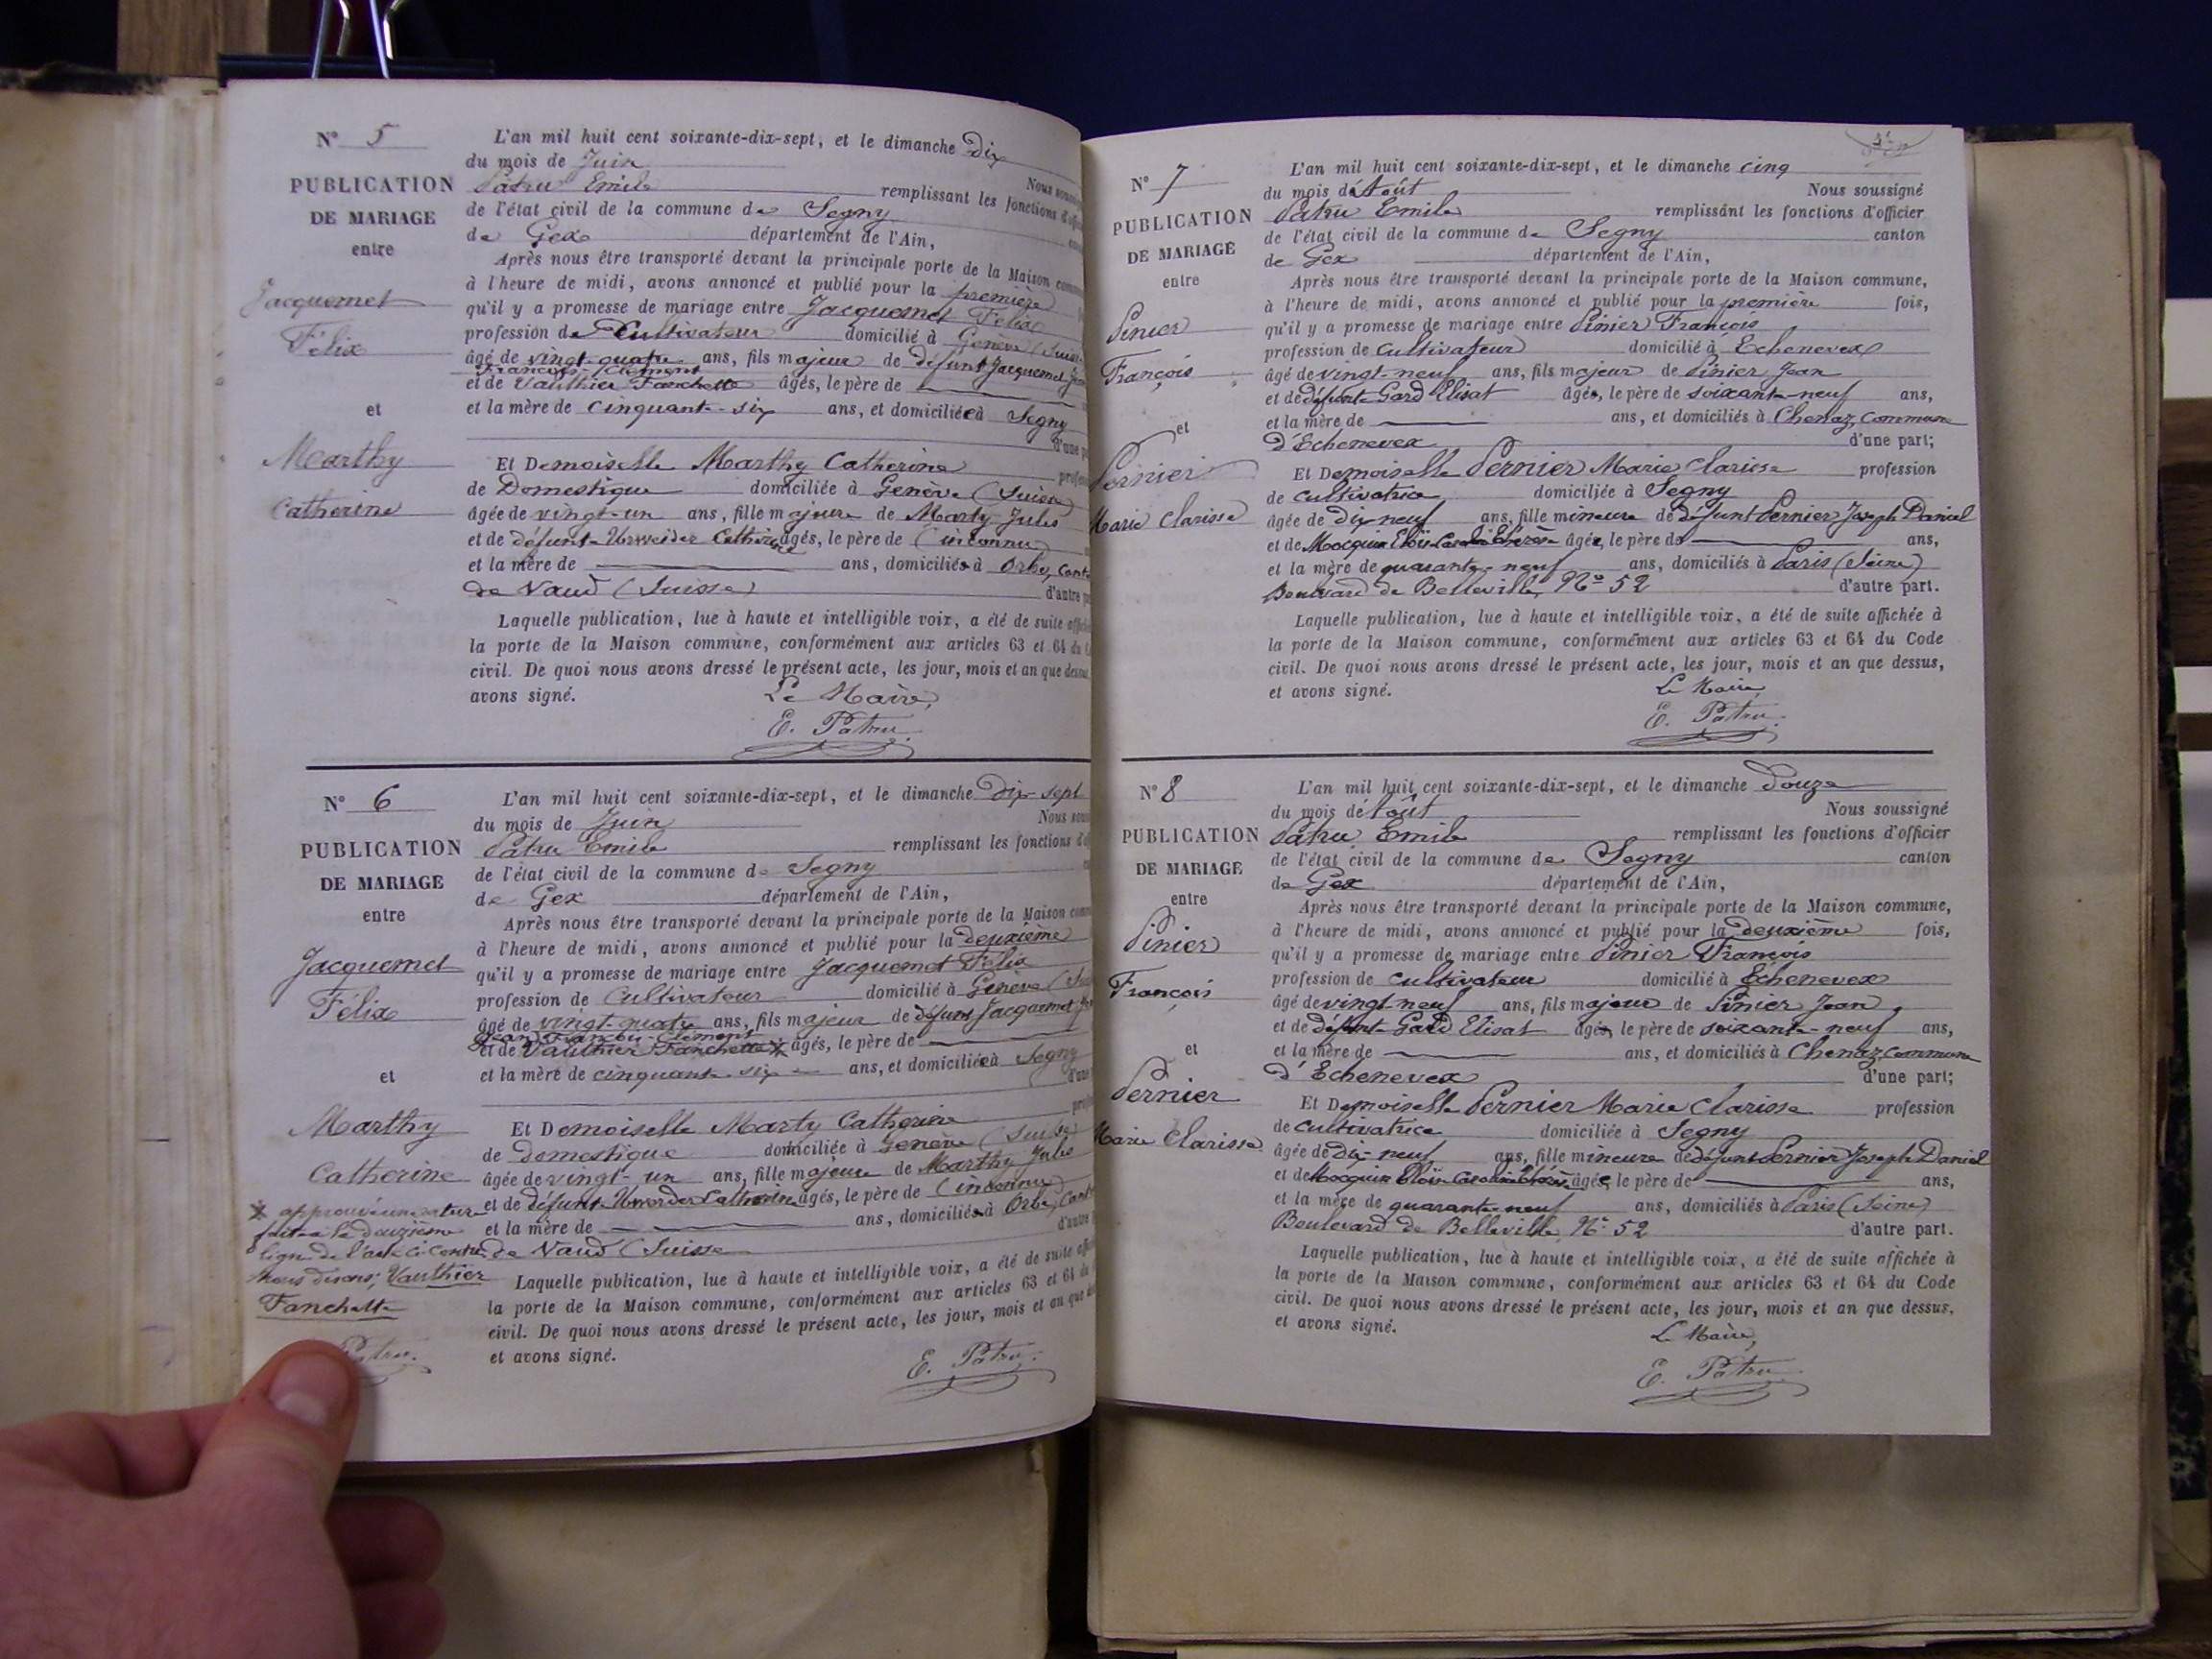 N° 5
PUBLICATION
DE MARIAGE
entre
Jacquemet
Félix
et
Marthy
Catherine
L'an mil huit cent soixante-dix-sept, et le dimanche Dix
du mois de Juin
Nous
Patru Emile remplissant les fonctions
de l'état civil de la commune de Segny
de Gex département de l'Ain,
Après nous être transporté devant la principale porte de la Maison
à l'heure de midi, avons annoncé et publié pour la première
qu'il y a promesse de mariage entre Jacquemet Félix
profession de Cultivateur domicilié à Genève
âgé de vingt-quatre ans, fils majeur de défunt Jacquemet
François-Clément
et de Vauthier Fanchette âgés, le père de
et la mère de cinquante-six ans, et domiciliée à Segny
d'une
Et Demoiselle Marthy Catherine
de Domestique domiciliée à Genève (Suisse)
âgée de vingt-un ans, fille majeure de Marty Jules
et de défunte Catherine âgés, le père de (inconnu)
et la mère de ans, domiciliés à Orbe,
de Vaud (Suisse) d'autre
Laquelle publication, lue à haute et intelligible voix, a été de suite
la porte de la Maison commune, conformément aux articles 63 et 64 du
civil. De quoi nous avons dressé le présent acte, les jour, mois et an que
avons signé.
Le Maire,
E. Patru
N° 6
PUBLICATION
DE MARIAGE
entre
Jacquemet
Félix
et
Marthy
Catherine
L'an mil huit cent soixante-dix-sept, et le dimanche dix-sept
du mois de Juin
Nous
Patru Emile remplissant les fonctions
de l'état civil de la commune de Segny
de Gex département de l'Ain,
Après nous être transporté devant la principale porte de la Maison
à l'heure de midi, avons annoncé et publié pour la deuxième
qu'il y a promesse de mariage entre Jacquemet Félix
profession de Cultivateur domicilié à Genève
âgé de vingt-quatre ans, fils majeur de défunt Jacquemet
Jean François-Clément
et de Vauthier Fanchette âgés, le père de
et la mère de cinquante-six ans, et domiciliée à Segny
Et Demoiselle Marty Catherine
de domestique domiciliée à Genève (Suisse)
âgée de vingt-un ans, fille majeure de Marthy Jules
et de défunte Catherine âgés, le père de (inconnu)
et la mère de ans, domiciliés à Orbe,
de Vaud (Suisse
Laquelle publication, lue à haute et intelligible voix, a été de suite
la porte de la Maison commune, conformément aux articles 63 et 64
civil. De quoi nous avons dressé le présent acte, les jour, mois et an que
et avons signé.
E. Patru
fait à la douzième
ligne de l'acte ci-contre
nous disons; Vauthier
Fanchette
Patru
N° 7
PUBLICATION
DE MARIAGE
entre
Pinier
François
et
Pernier
Marie Clarisse
L'an mil huit cent soixante-dix-sept, et le dimanche cinq
du mois d'Août Nous soussigné
Patru Emile remplissant les fonctions d'officier
de l'état civil de la commune de Segny canton
de Gex département de l'Ain,
Après nous être transporté devant la principale porte de la Maison commune,
à l'heure de midi, avons annoncé et publié pour la première fois,
qu'il y a promesse de mariage entre Pinier François
profession de Cultivateur domicilié à Echenevex
âgé de vingt-neuf ans, fils majeur de Pinier Jean
et de défunte Gard Elisat âgés, le père de soixante-neuf ans,
et la mère de ans, et domiciliés à Chenaz, Commune
d'Echenevex d'une part;
Et Demoiselle Pernier Marie Clarisse profession
de cultivatrice domiciliée à Segny
âgée de dix-neuf ans, fille mineure de défunt Pernier Joseph Daniel
et de Mocquin âgée, le père de ans,
et la mère de quarante-neuf ans, domiciliés à Paris (Seine)
Boulevard de Belleville, N° 52 d'autre part.
Laquelle publication, lue à haute et intelligible voix, a été de suite affichée à
la porte de la Maison commune, conformément aux articles 63 et 64 du Code
civil. De quoi nous avons dressé le présent acte, les jour, mois et an que dessus,
et avons signé.
Le Maire,
E. Patru
N° 8
PUBLICATION
DE MARIAGE
entre
Pinier
François
et
Pernier
Marie Clarisse
L'an mil huit cent soixante-dix-sept, et le dimanche Douze
du mois d'Août Nous soussigné
Patru Emile remplissant les fonctions d'officier
de l'état civil de la commune de Segny canton
de Gex département de l'Ain,
Après nous être transporté devant la principale porte de la Maison commune,
à l'heure de midi, avons annoncé et publié pour la deuxième fois,
qu'il y a promesse de mariage entre Pinier François
profession de cultivateur domicilié à Echenevex
âgé de vingt-neuf ans, fils majeur de Pinier Jean
et de défunte Gard Elisat âgés, le père de soixante-neuf ans,
et la mère de ans, et domiciliés à Chenaz, commune
d'Echenevex d'une part;
Et Demoiselle Pernier Marie Clarisse profession
de cultivatrice domiciliée à Segny
âgée de dix-neuf ans, fille mineure de défunt Pernier Joseph Daniel
et de Mocquin âgée, le père de ans,
et la mère de quarante-neuf ans, domiciliés à Paris (Seine)
Boulevard de Belleville, N° 52 d'autre part.
Laquelle publication, lue à haute et intelligible voix, a été de suite affichée à
la porte de la Maison commune, conformément aux articles 63 et 64 du Code
civil. De quoi nous avons dressé le présent acte, les jour, mois et an que dessus,
et avons signé.
Le Maire,
E. Patru